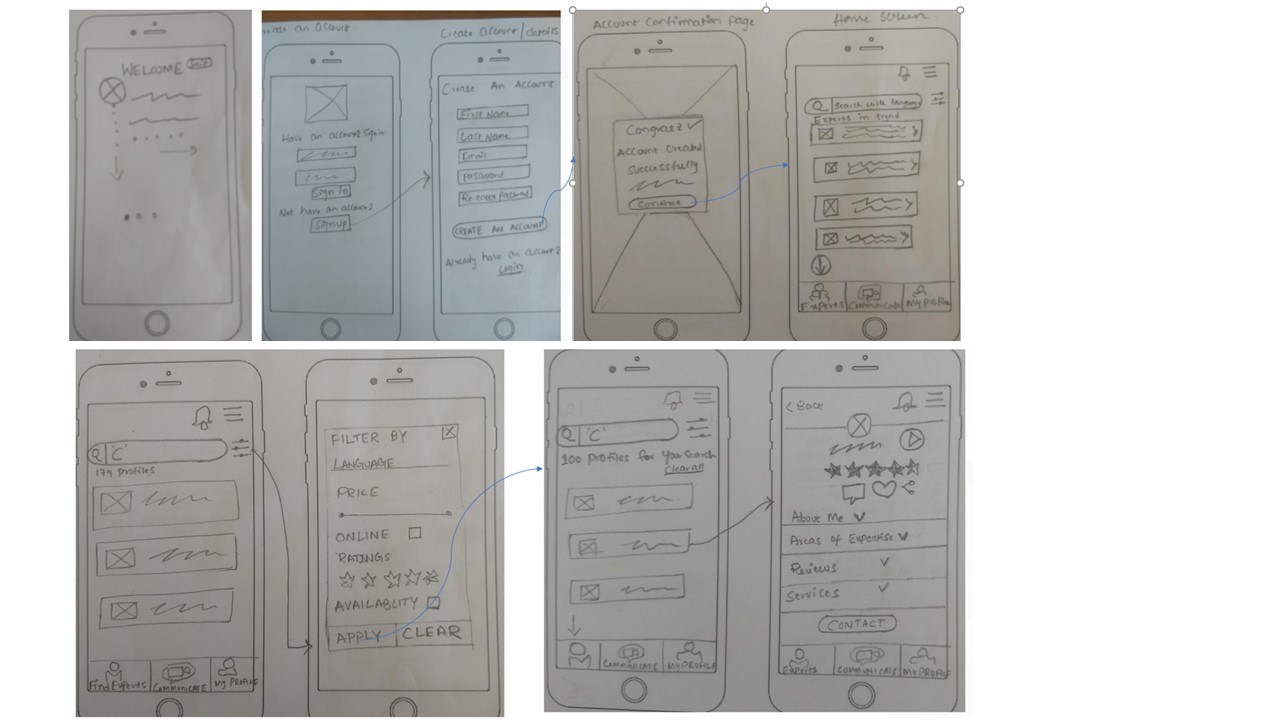 WELCOME
Create an Account
Have an account? Sign in
Sign In
Not have an account?
Sign up
Create Account/details
Create An Account
First Name
Last Name
Email
Password
Re-enter Password
CREATE AN ACCOUNT
Already have an account?
Login
Account Confirmation Page
Congratz ✓
Account Created
Successfully
Continue
Home Screen
Q Search with language
Experts in trend
Experts Communicate My profile
Q 'C'
179 Profiles
Find Experts COMMUNICATE MY PROFILE
FILTER BY X
LANGUAGE
PRICE
ONLINE
RATINGS
AVAILABLITY
APPLY CLEAR
Q 'C'
100 profiles for your search
Clear all
COMMUNICATE MY PROFILE
< Back
About Me
Areas of Expertise
Reviews
Services
CONTACT
Experts COMMUNICATE MY PROFILE